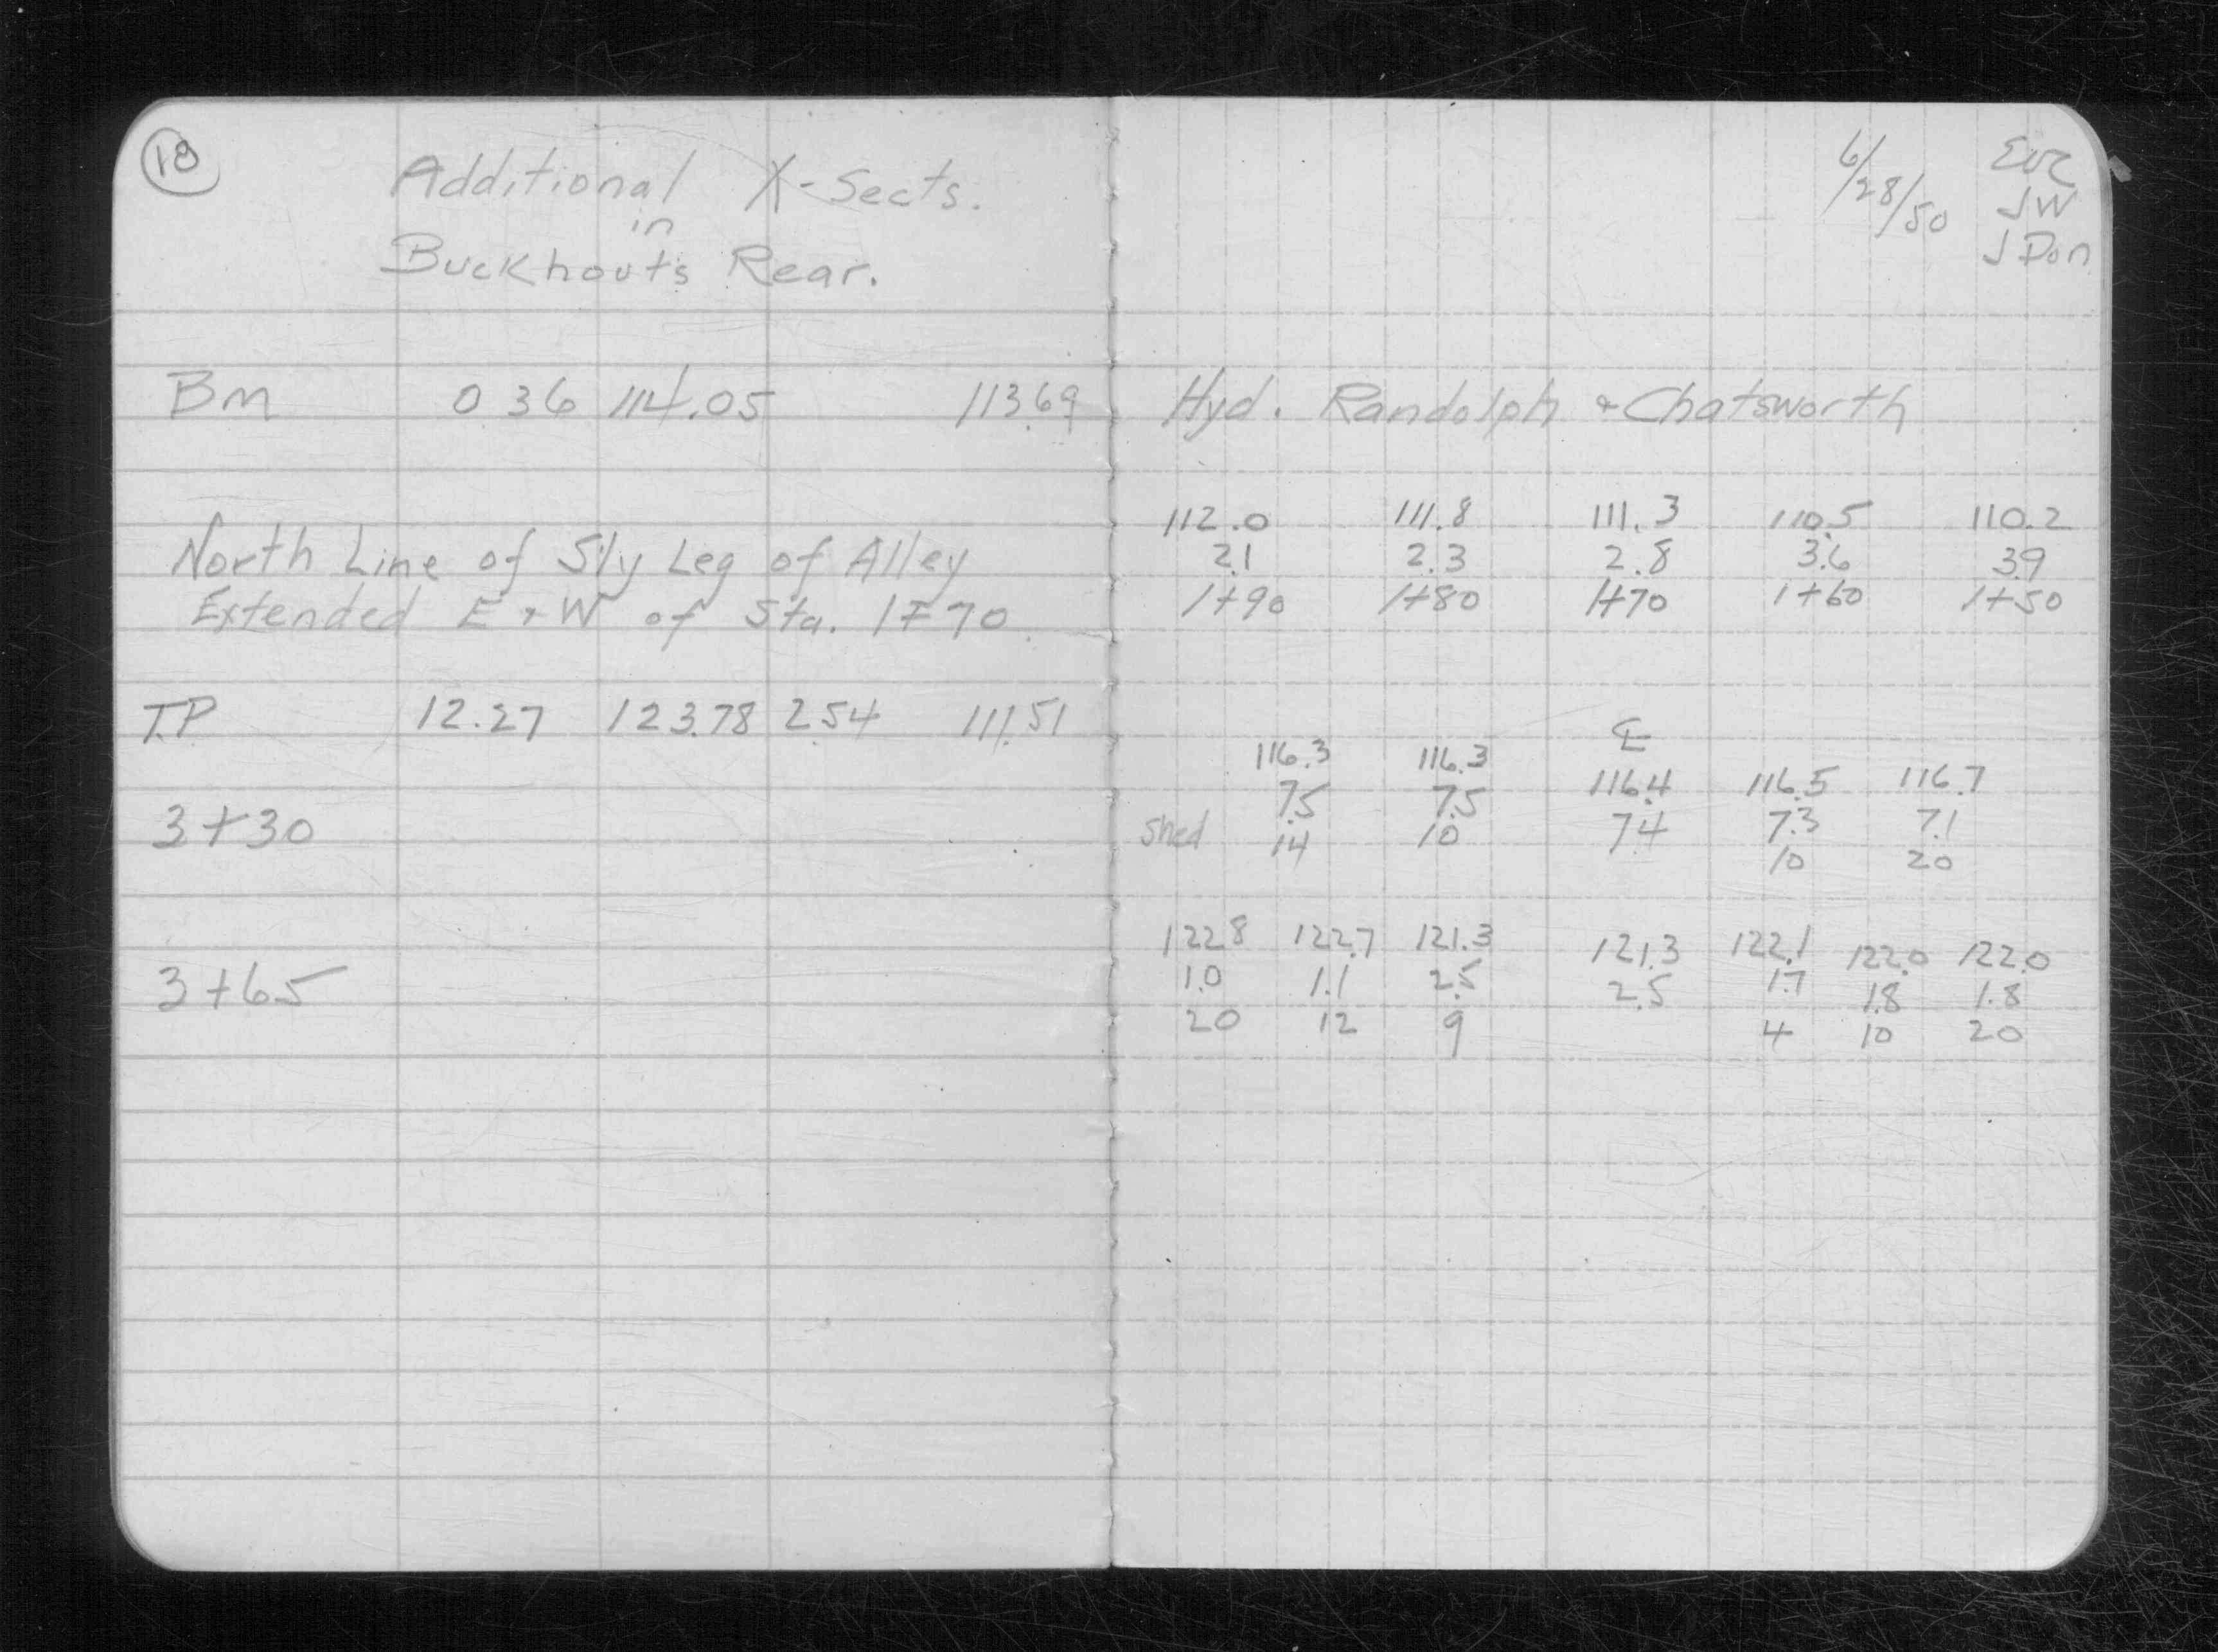 18
Additional X-Sects.
in
Buckhouts Rear.
BM 0.36 114.05 113.69
North Line of S'ly Leg of Alley
Extended E + W of Sta. 1+70
T.P 12.27 123.78 2.54 111.51
3+30
3+65
6/28/50
JW
J Don
Hyd. Randolph + Chatsworth
112.0 111.8 111.3 110.5 110.2
2.1 2.3 2.8 3.6 3.9
1+90 1+80 1+70 1+60 1+50
℄
116.3 116.3 116.4 116.5 116.7
7.5 7.5 7.4 7.3 7.1
Shed 14 10 10 20
122.8 122.7 121.3 121.3 122.1 122.0 122.0
1.0 1.1 2.5 2.5 1.7 1.8 1.8
20 12 9 4 10 20